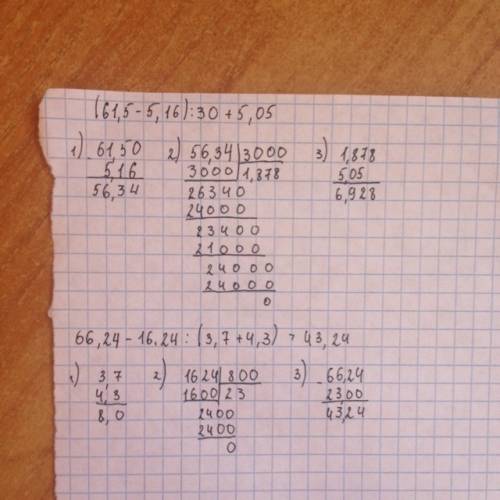 (61,5-5,16):30+5,05
1) 61,50
- 5,16
56,34
2) 56,34 | 3000
3000 | 1,878
26340
24000
23400
21000
24000
24000
0
3) 1,878
5,05
6,928
66,24-16.24:(3,7+4,3) = 43,24
1) 3,7
4,3
8,0
2) 1624 | 800
1600 | 23
2400
2400
0
3) - 66,24
23,00
43,24